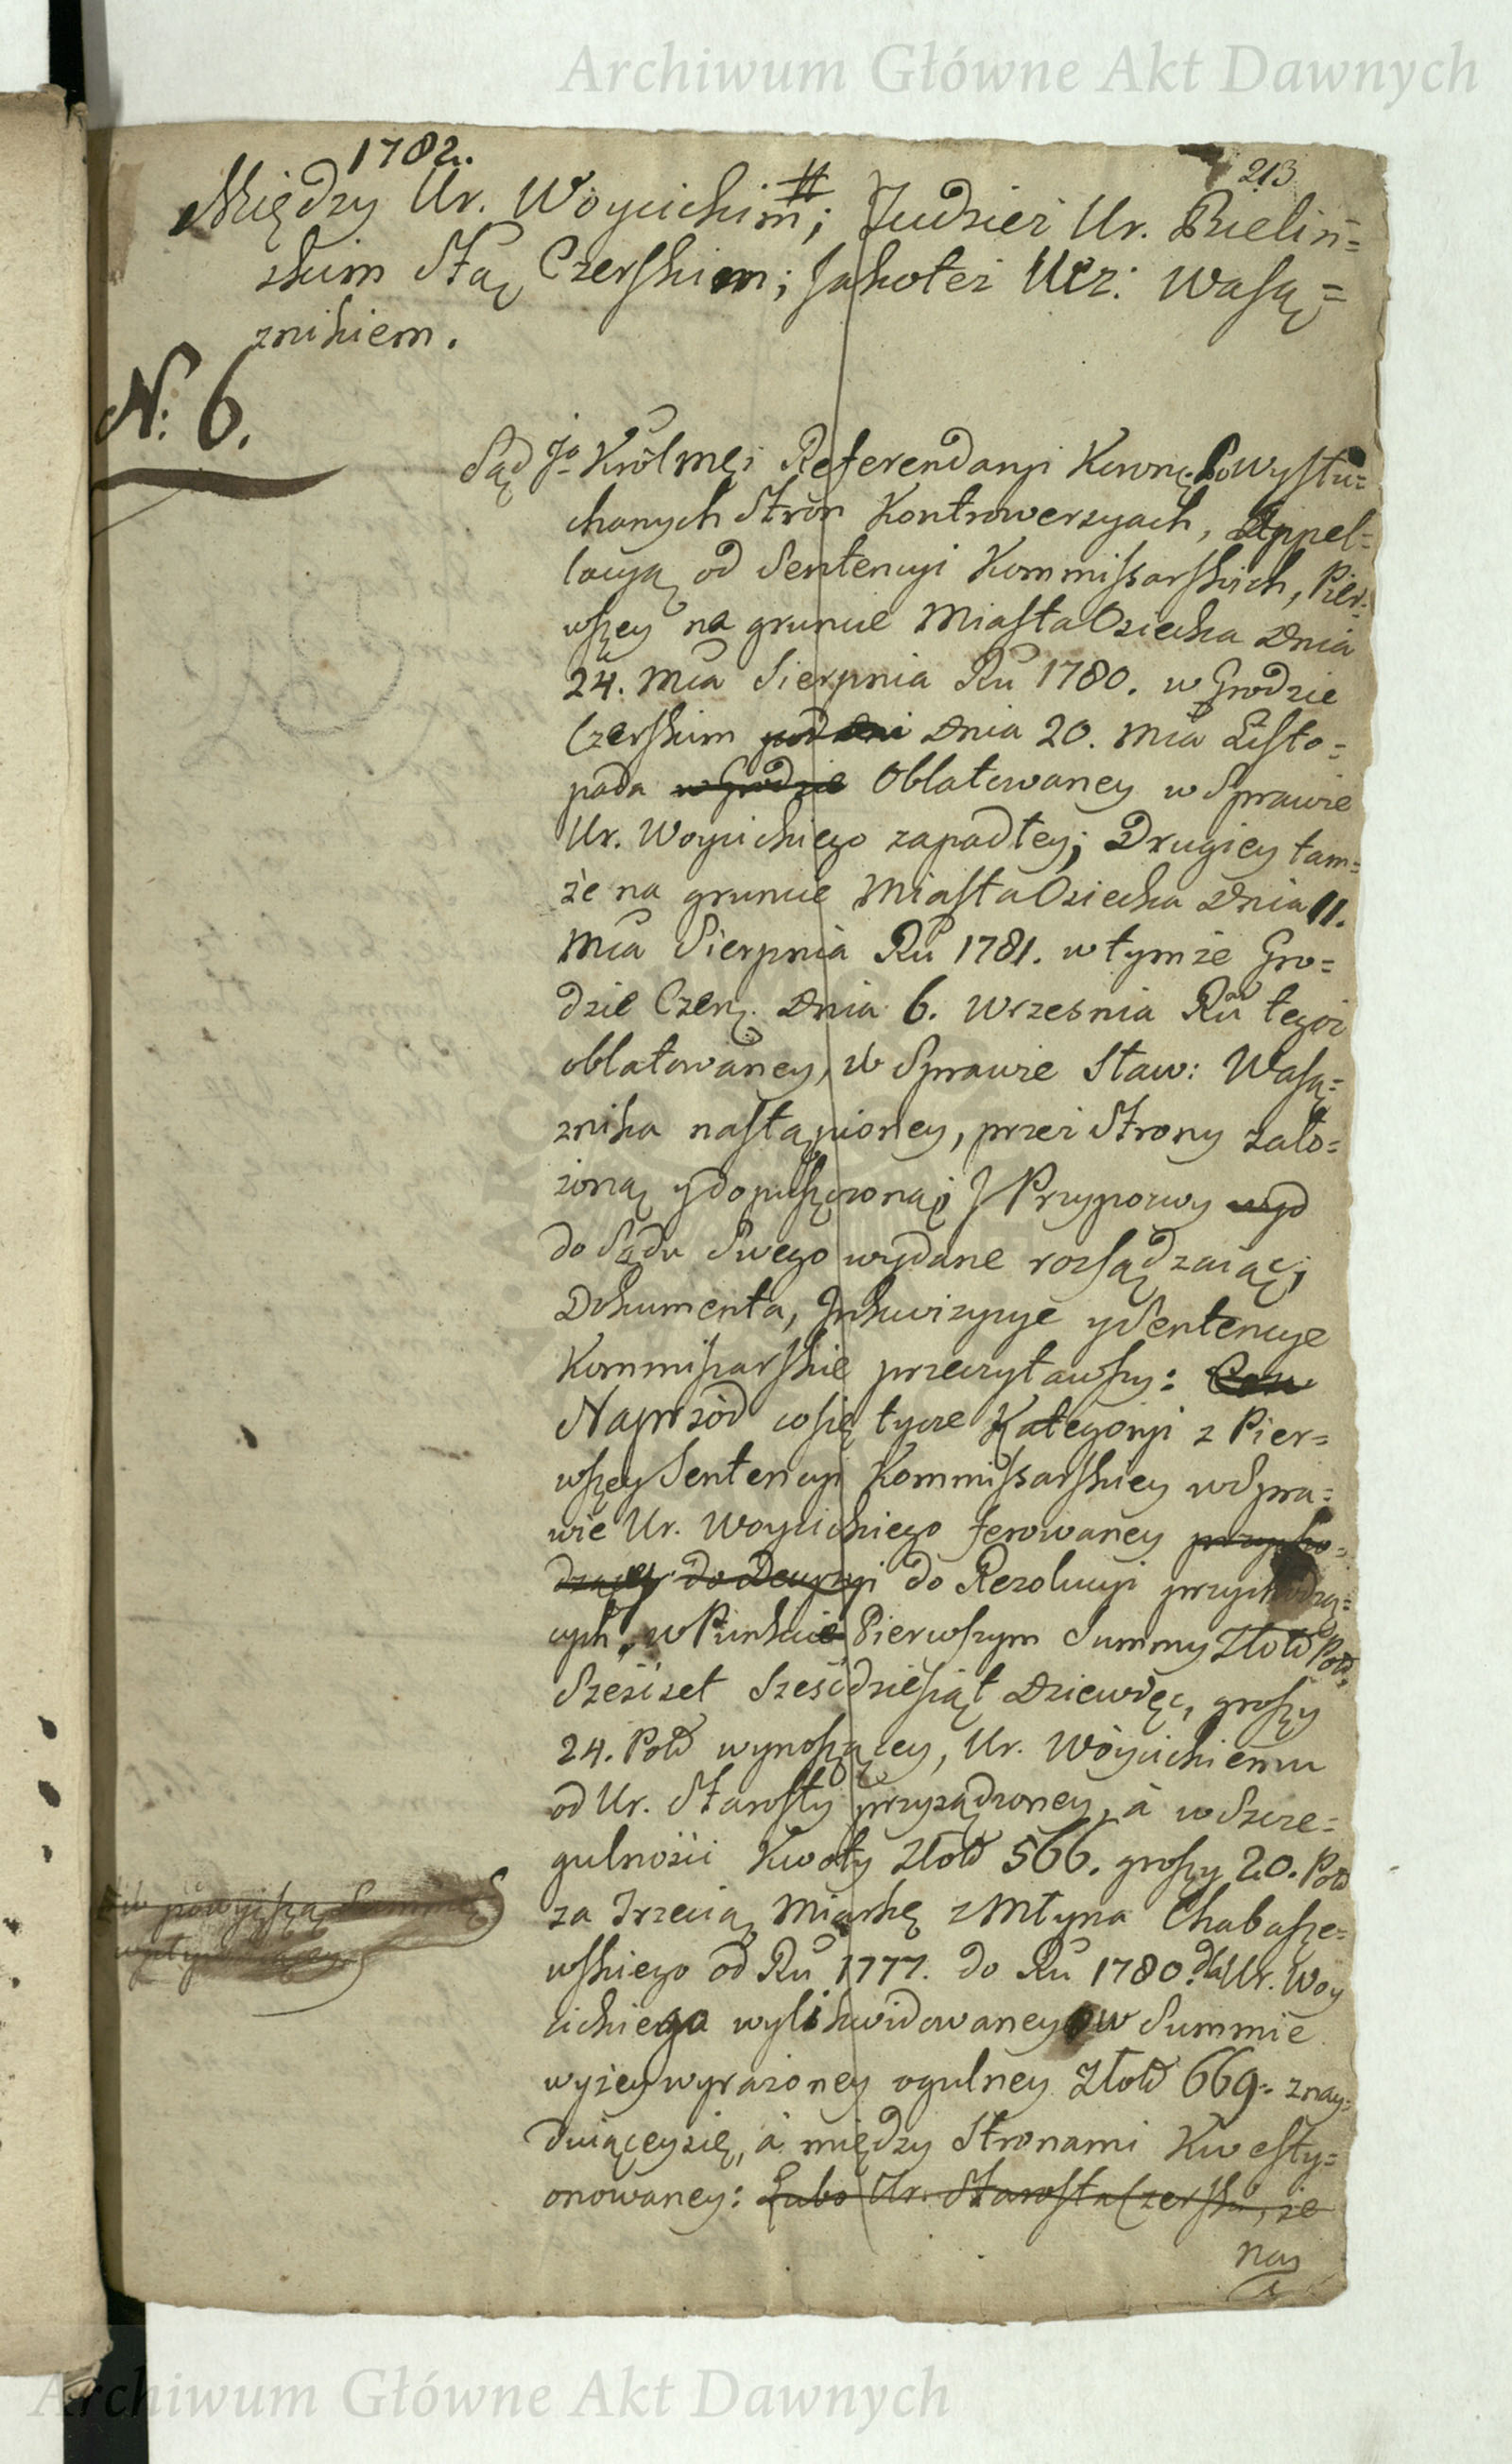 Archiwum Główne Akt Dawnych
1782.
213
Między Ur. Woycickim #; Tudzież Ur. Bieliń=
skim Stą Czerskiem; jakoteż Ucz: Wasą=
znikiem.
N: 6.
Sąd Jo Król mći Referendaryi Koronę. Po wysłu=
chanych Stron Kontrowersyach, Appel=
lacyą od Sentencyi Kommissarskich, Pier=
wszey na gruncie Miasta Osiecka Dnia
24. Mca Sierpnia Ru 1780. w Grodzie
Czerskim pod Dni Dnia 20. Mca Listo=
pada w Grodzie Oblatowaney w Sprawie
Ur. Woycickiego zapadłey; Drugiey tam=
że na gruncie Miasta Osiecka Dnia 11.
Mca Sierpnia Ru 1781. w tymże Gro=
dzie Czer. Dnia 6. Wrzesnia Ru tegoż
oblatowaney, w Sprawie Sław: Wasą=
znika nastąpioney, przez Strony zało=
żoną y dopuszczoną; J Przypozwy wyd
do Sądu Swego wydane rozsądzaiąc;
Dokumenta, Inkwizycye y Sentencye
Kommissarskie przeczytawszy:
Naprzód co się tycze Kategoryi z Pier=
wszey Sentencyi Kommissarskiey w Spra=
wie Ur. Woycickiego ferowaney przycho=
dzącey do Decyzyi do Rezolucyi przychodzą=
cych, w Punkcie Pierwszym Summy Złotł Pol.
Sześćset Sześćdziesiąt Dziewięć, groszy
24. Pol wynoszącey, Ur. Woycickiemu
od Ur. Starosty przysądzoney, à w Szcze=
gulności Kwoty Złotł 566. groszy 20. Pol
za Trzecią Miarkę z Młyna Chabasze=
wskiego od Ru 1777. do Ru 1780. dla Ur. Woy
cickiego wylikwidowaney w Summie
wyżey wyrażoney ogulney Złotł 669. znay=
duiącey się, à między Stronami Kwesty=
onowaney: Lubo Ur. Starosta Czerski, że
nay
powyższą Summę
Archiwum Główne Akt Dawnych